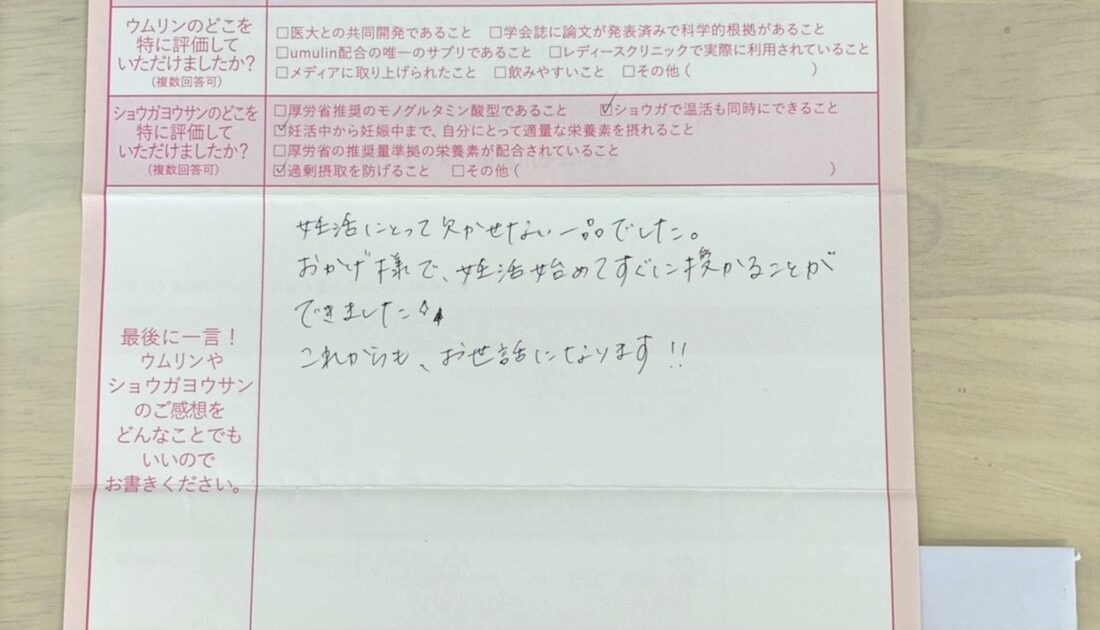 ウムリンのどこを
特に評価して
いただけましたか?
(複数回答可)
□医大との共同開発であること □学会誌に論文が発表済みで科学的根拠があること
□umulin配合の唯一のサプリであること □レディースクリニックで実際に利用されていること
□メディアに取り上げられたこと □飲みやすいこと □その他( )
ショウガヨウサンのどこを
特に評価して
いただけましたか?
(複数回答可)
□厚労省推奨のモノグルタミン酸型であること ☑ショウガで温活も同時にできること
☑妊活中から妊娠中まで、自分にとって適量な栄養素を摂れること
□厚労省の推奨量準拠の栄養素が配合されていること
☑過剰摂取を防げること □その他( )
最後に一言!
ウムリンや
ショウガヨウサン
のご感想を
どんなことでも
いいので
お書きください。
妊活にとって欠かせない一品でした。
おかげ様で、妊活始めてすぐに授かることが
できました
これからも、お世話になります!!